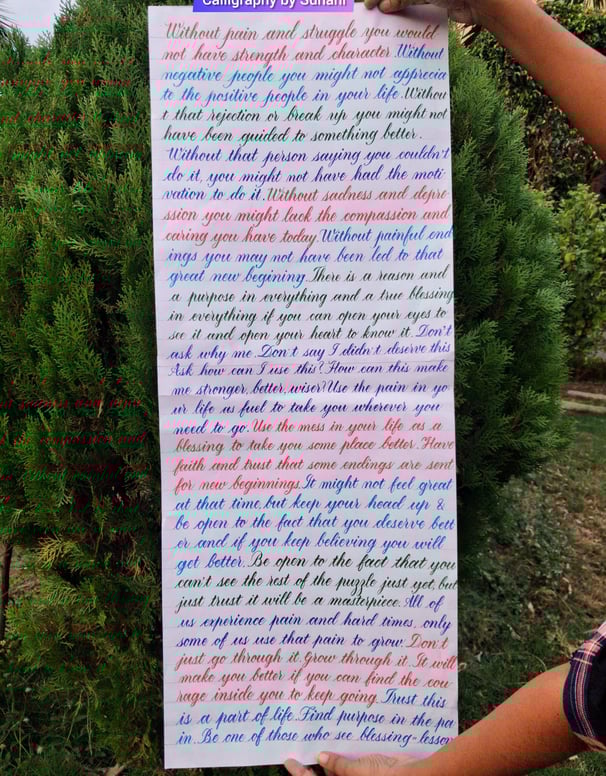 Calligraphy by Suhani
Without pain and struggle you would
not have strength and character. Without
negative people you might not apprecia
te the positive people in your life. Withou
t that rejection or break up you might not
have been guided to something better.
Without that person saying you couldn't
do it, you might not have had the moti
vation to do it. Without sadness and depre
ssion you might lack the compassion and
caring you have today. Without painful end
ings you may not have been led to that
great new begining. There is a reason and
a purpose in everything and a true blessing
in everything if you can open your eyes to
see it and open your heart to know it. Don't
ask why me. Don't say I didn't deserve this
Ask how can I use this? How can this make
me stronger, better, wiser? Use the pain in yo
ur life as fuel to take you wherever you
need to go. Use the mess in your life as a
blessing to take you some place better. Have
faith and trust that some endings are sent
for new beginnings. It might not feel great
at that time, but keep your head up &
be open to the fact that you deserve bett
er and if you keep believing you will
get better. Be open to the fact that you
can't see the rest of the puzzle just yet, but
just trust it will be a masterpiece. All of
us experience pain and hard times, only
some of us use that pain to grow. Don't
just go through it. Grow through it. It will
make you better if you can find the cou
rage inside you to keep going. Trust this
is a part of life. Find purpose in the pa
in. Be one of those who see blessing-lesson